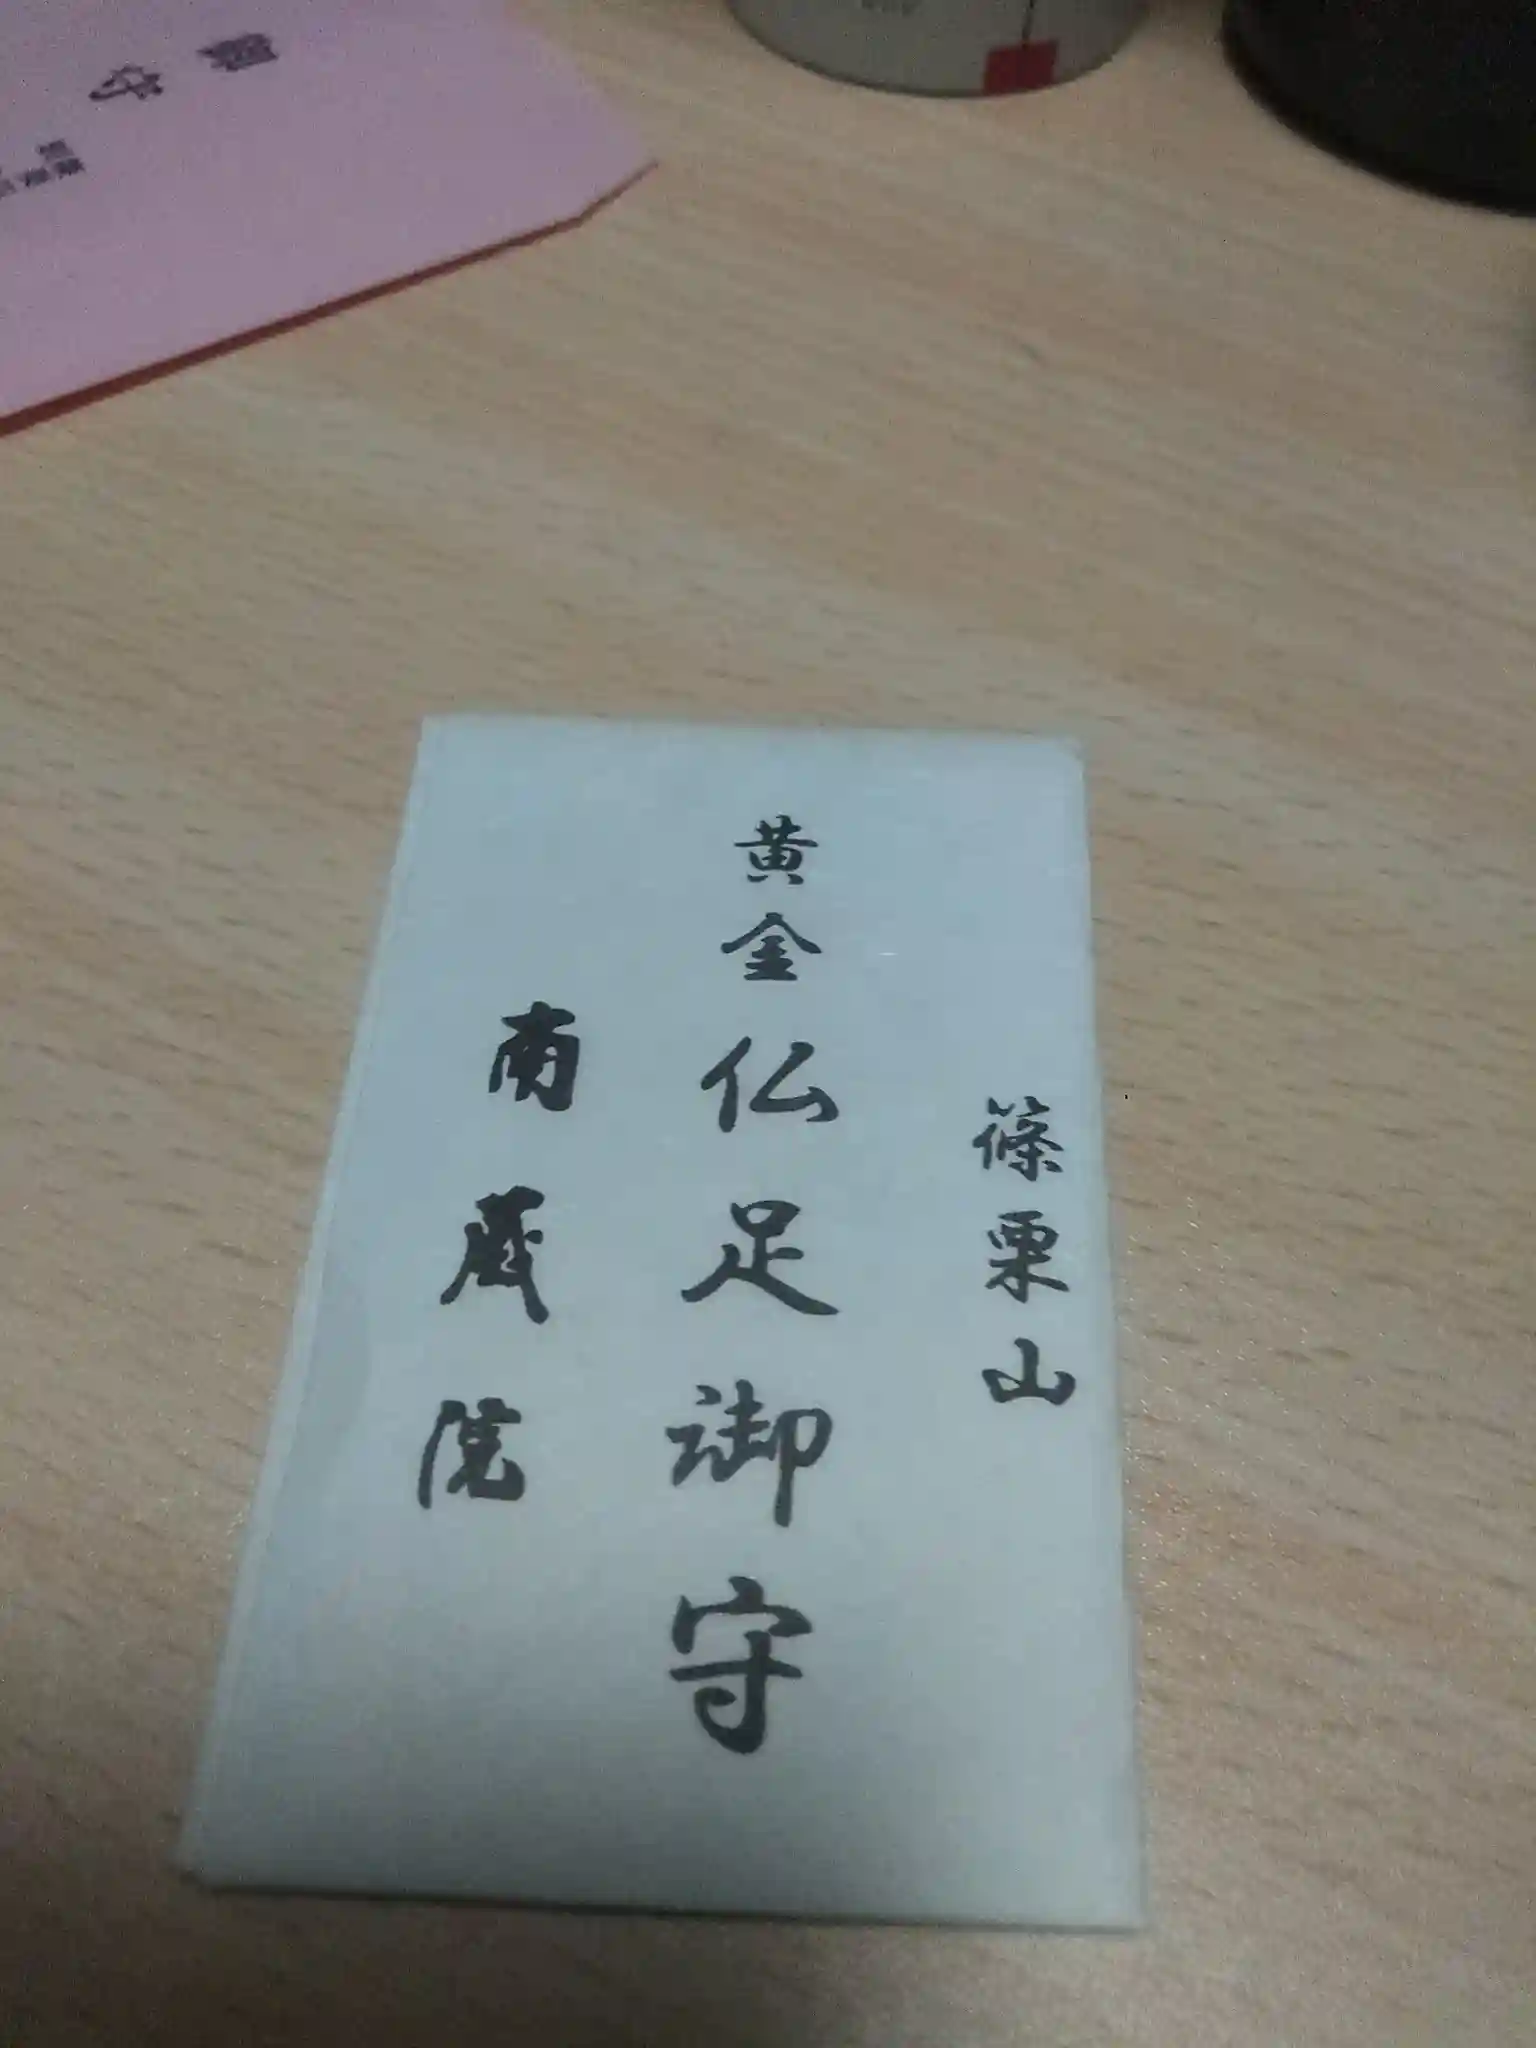 篠栗山
黄金仏足御守
南蔵院
御守